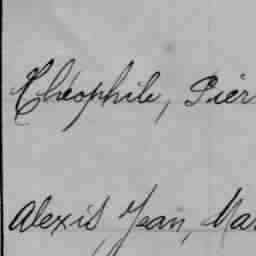 Théophile, Pier
Alexis Jean, Mar